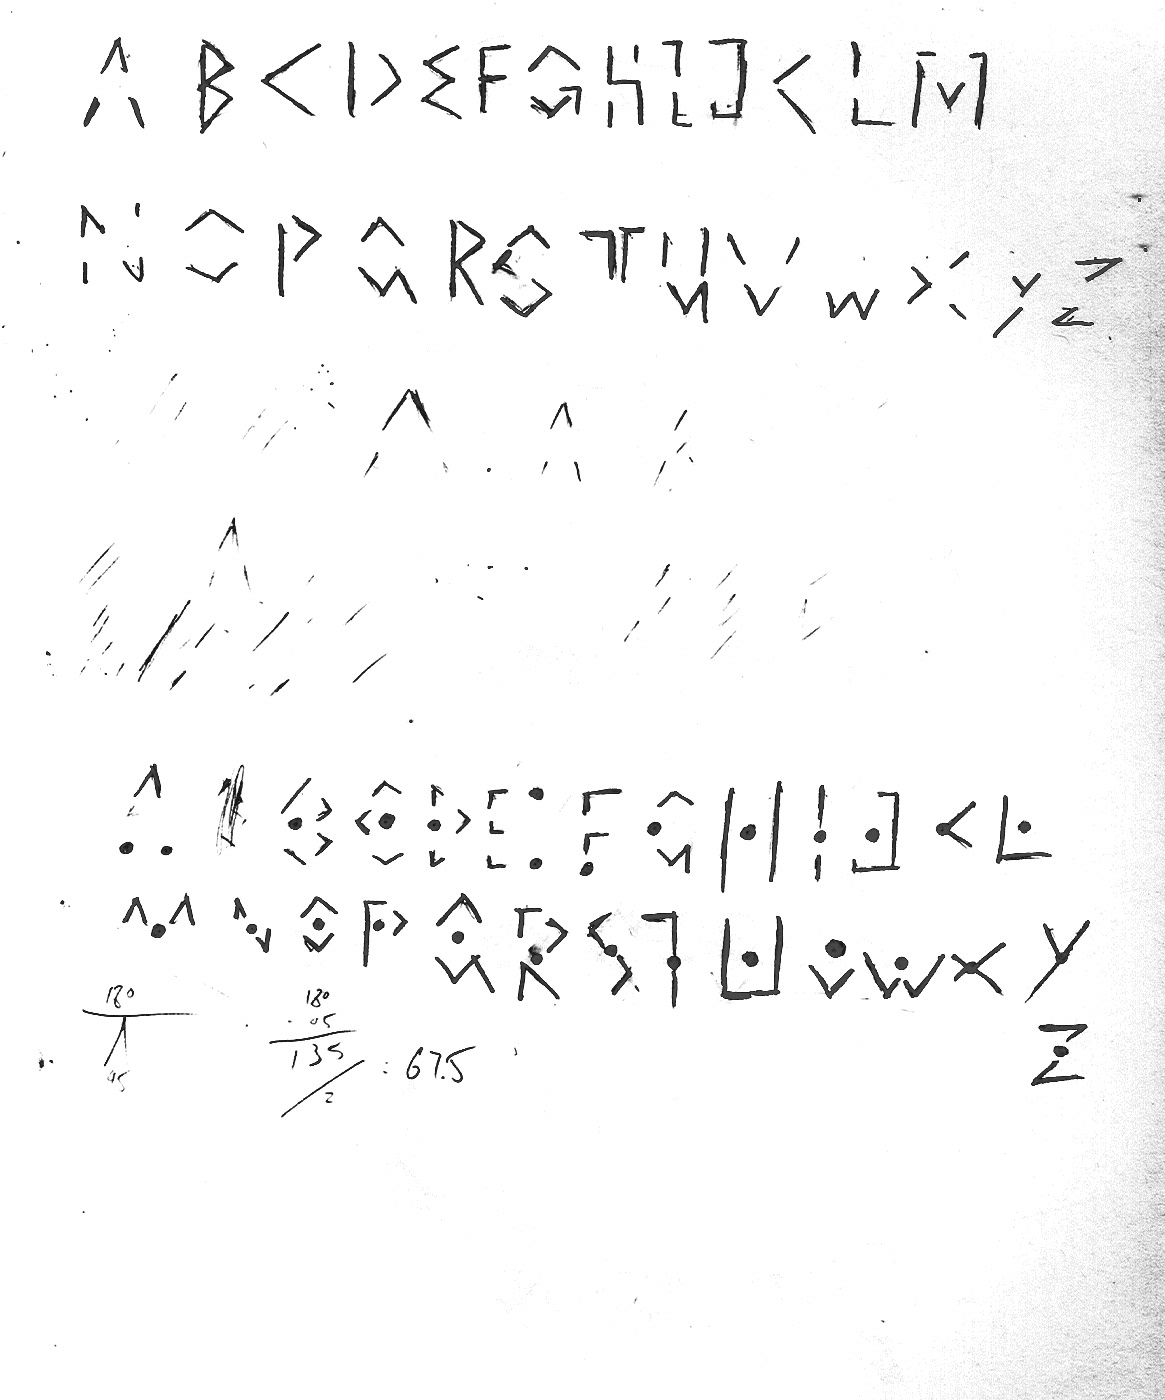 A B C D E F G H I J K L M
N O P Q R S T U V W X Y Z
A A
A
A B C D E F G H I J K L
M N O P Q R S T U V W X Y
Z
180
45
180
- 45
135
/ 2 : 67.5